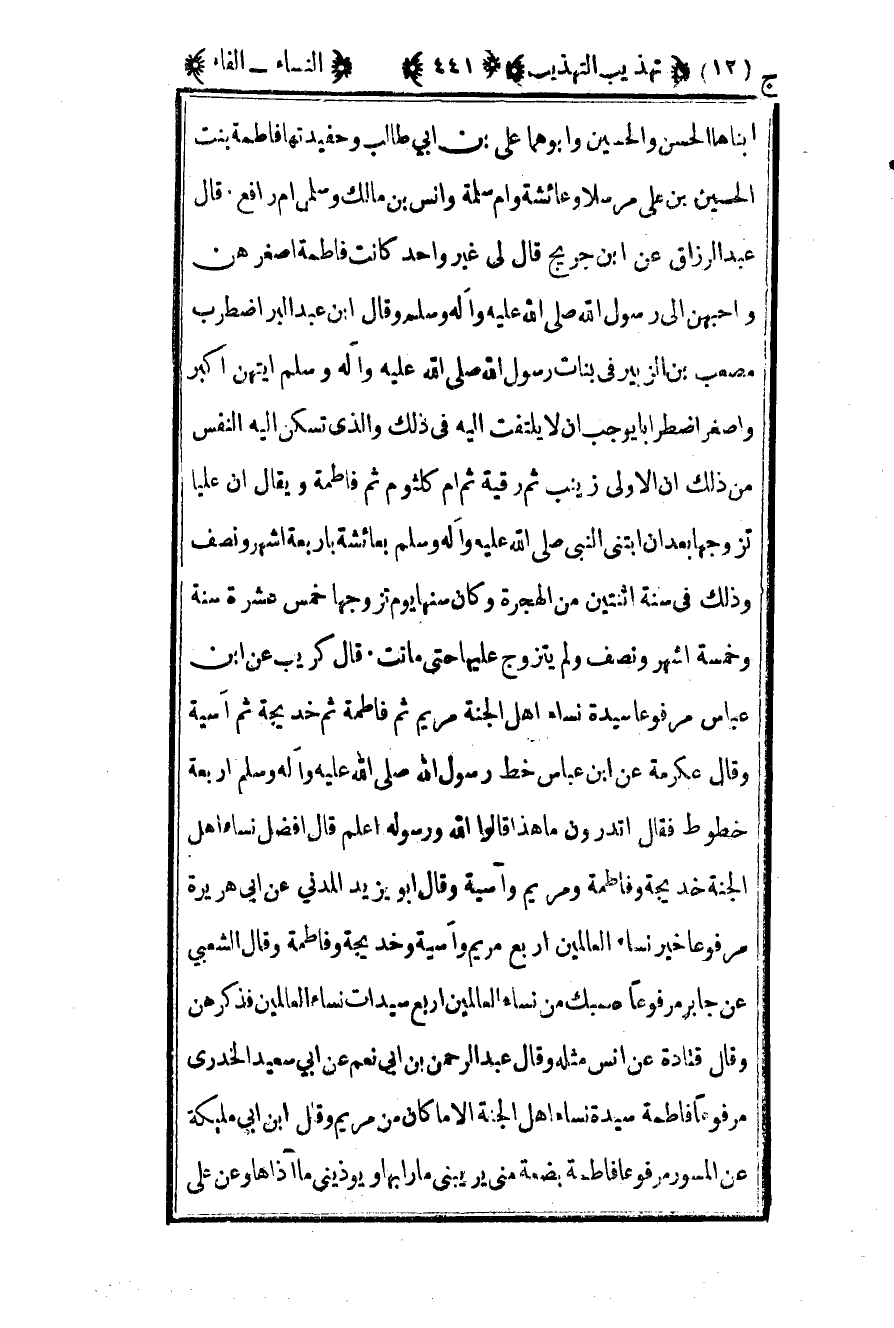 ج (١٢) تهذيب التهذيب ٤٤١ النساء ــ الفاء
ابناها الحسن والحسين وابوهما على بن ابي طالب وحفيدتها فاطمة بنت
الحسين بن على مرسلا وعائشة وام سلمة وانس بن مالك وسلمى ام رافع ٠ قال
عبد الرزاق عن ابن جريج قال لى غير واحد كانت فاطمة اصغر هن
و احبهن الى رسول الله صلى الله عليه وآله وسلم وقال ابن عبد البر اضطرب
مصعب بن الزبير فى بنات رسول الله صلى الله عليه وآله وسلم ايتهن اكبر
واصغر اضطرابا يوجب ان لا يلتفت اليه فى ذلك والذى تسكن اليه النفس
من ذلك ان الاولى زينب ثم رقية ثم ام كلثوم ثم فاطمة ويقال ان عليا
تزوجها بعد ان ابتنى النبى صلى الله عليه وآله وسلم بعائشة باربعة اشهر ونصف
وذلك فى سنة اثنتين من الهجرة وكان سنها يوم تزوجها خمس عشرة سنة
وخمسة اشهر ونصف ولم يتزوج عليها حتى ماتت ٠ قال كريب عن ابن
عباس مرفوعا سيدة نساء اهل الجنة مريم ثم فاطمة ثم خديجة ثم آسية
وقال عكرمة عن ابن عباس خط رسول الله صلى الله عليه وآله وسلم اربعة
خطوط فقال اتدرون ما هذا قالوا الله ورسوله اعلم قال افضل نساء اهل
الجنة خديجة وفاطمة ومريم وآسية وقال ابو يزيد المدني عن ابى هريرة
مرفوعا خير نساء العالمين اربع مريم وآسية وخديجة وفاطمة وقال الشعبي
عن جابر مرفوعاً حسبك من نساء العالمين اربع سيدات نساء العالمين فذكرهن
وقال قتادة عن انس مثله وقال عبد الرحمن بن ابى نعم عن ابي سعيد الخدرى
مرفوعاً فاطمة سيدة نساء اهل الجنة الا ما كان من مريم وقال ابن ابي مليكة
عن المسور مرفوعا فاطمة بضعة منى يريبنى ما رابها ويوذيني ما آذاها وعن على